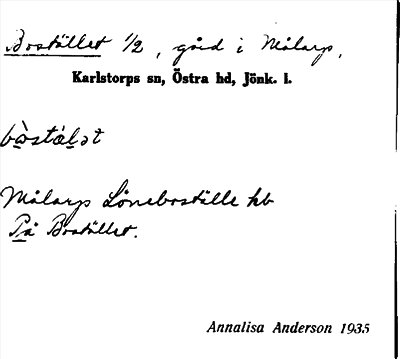 Bostället 1/2, gård i Målarp,
Karlstorps sn, Östra hd, Jönk. l.
bòstäl̲ət
Målarps Löneboställe hb
På Bostället.
Annalisa Anderson 1935